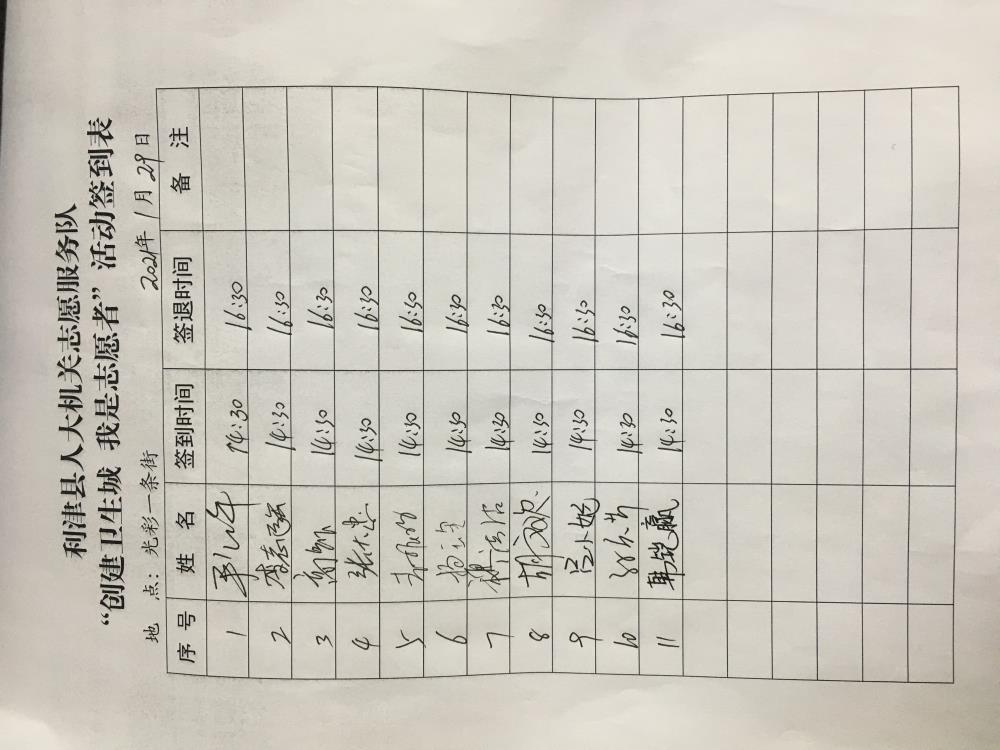 利津县人大机关志愿服务队
“创建卫生城 我是志愿者”活动签到表
地 点：光彩一条街 2021年1月29日
序 号 姓 名 签到时间 签退时间 备 注
1 14:30 16:30
2 李志强 14:30 16:30
3 14:30 16:30
4 张大忠 14:30 16:30
5 14:30 16:30
6 14:30 16:30
7 14:30 16:30
8 胡文忠 14:30 16:30
9 吕小妮 14:30 16:30
10 14:30 16:30
11 韩锐赢 14:30 16:30